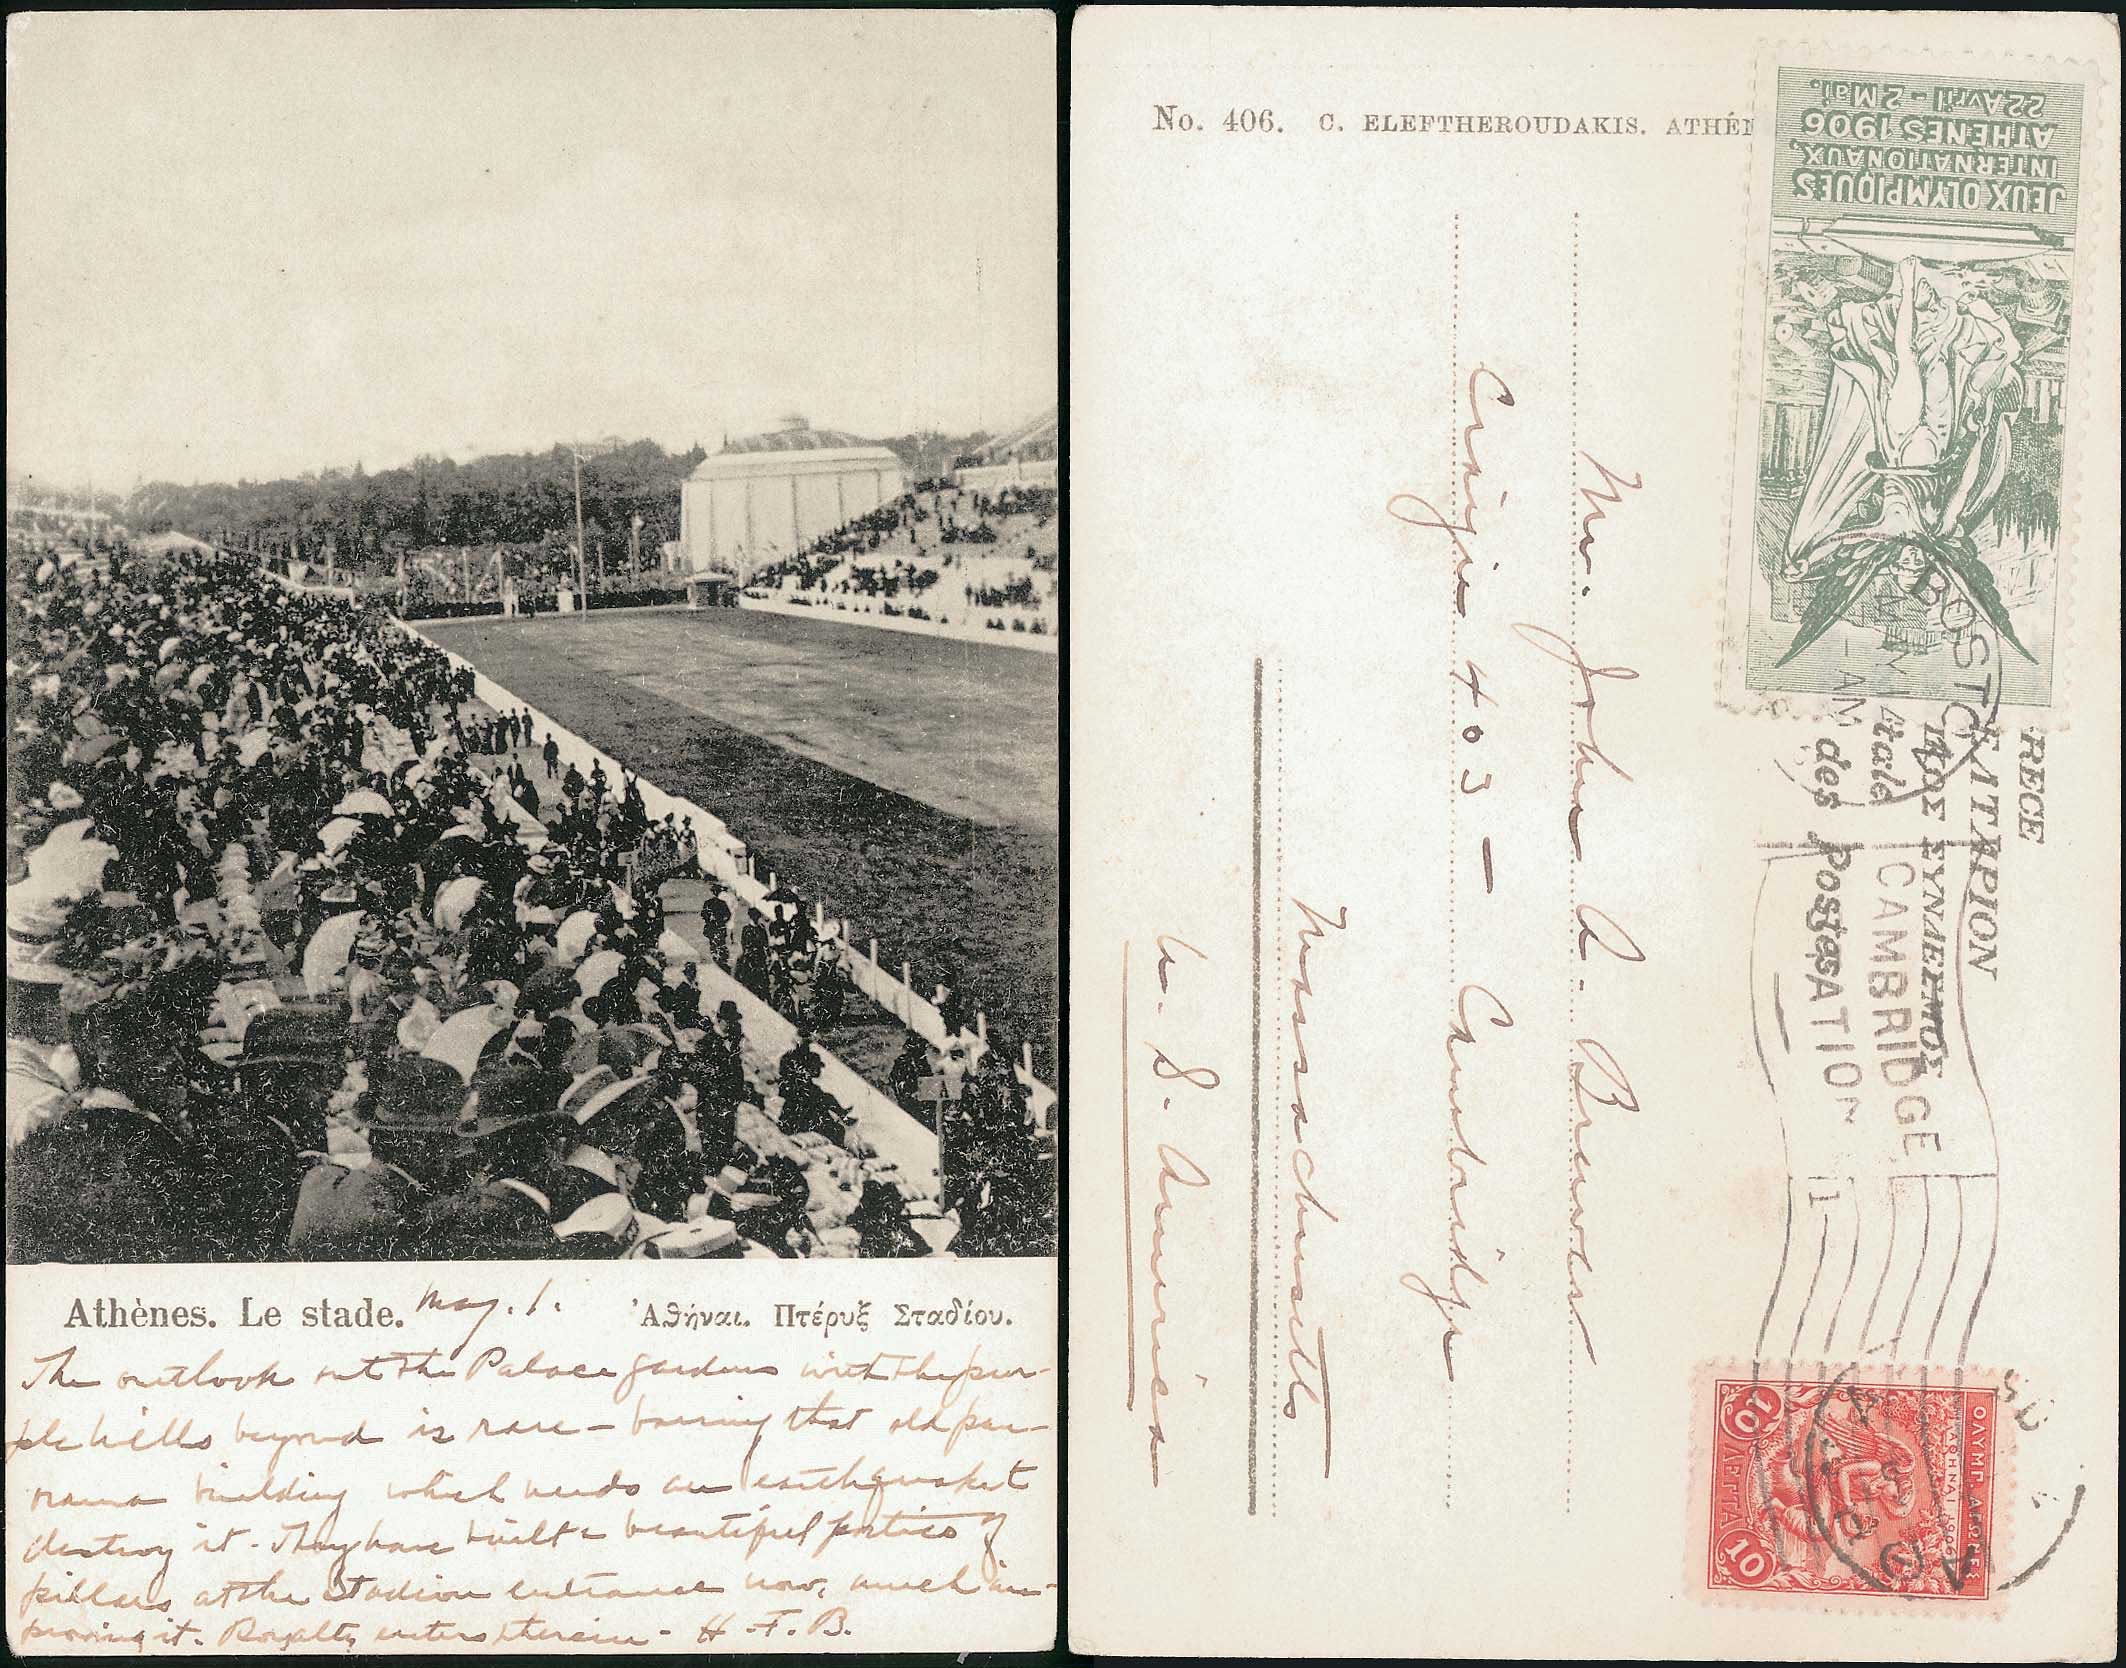 Athènes. Le stade. May. 1. Ἀθῆναι. Πτέρυξ Σταδίου.
The outlook out the Palace gardens with the pur-
ple hills beyond is rare — barring that old pan-
orama building which needs an earthquake to
destroy it. They have built a beautiful portico of
pillars at the Stadion entrance now, much im-
proving it. Royalty enters therein - H. F. B.
No. 406. C. ELEFTHEROUDAKIS. ATHÉN
JEUX OLYMPIQUES
INTERNATIONAUX,
ATHENES 1906
22 Avril - 2 Mai.
RECE
ΕΠΙΣΤΑΡΙΟΝ
ΣΥΝΔΕΣΜΟΣ
des Postes
BOSTO
AM
CAMBRIDGE
STATION
1
ΟΛΥΜΠ. ΑΓΩΝΕΣ
ΑΘΗΝΑΙ 1906
10 ΛΕΠΤΑ 10
Mr. John A. Brewer
Craigie 403 — Cambridge
Massachusetts
U. S. America